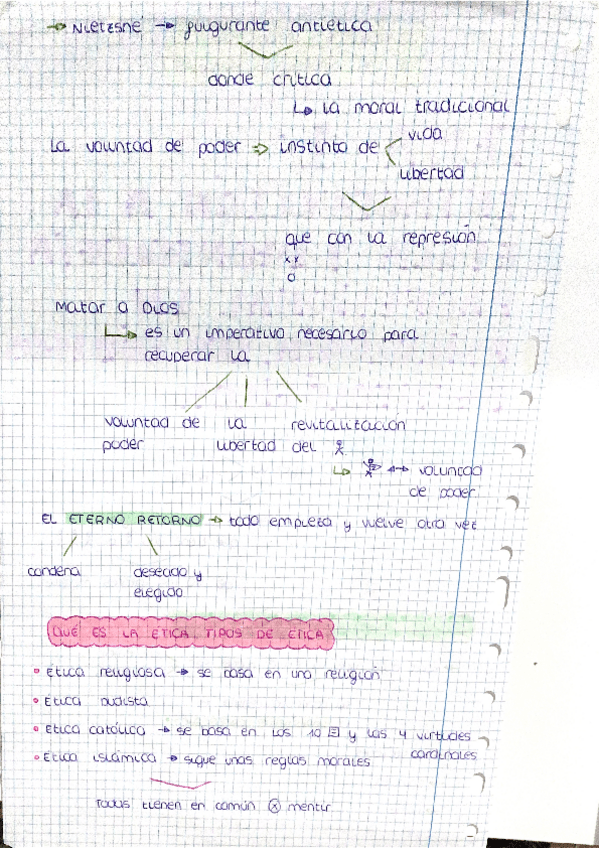 → Nietzsne → fulgurante antietica
donde critica
↳ la moral tradicional
La voluntad de poder ⇒ instinto de < vida
libertad
que con la represión
xx
o
Matar a Dios
↳ es un imperativo necesario para
recuperar la
voluntad de la revitalización
poder libertad del
↳ ↔ voluntad
de poder
EL ETERNO RETORNO → todo empieza y vuelve otra vez
condena deseado y
elegido
QUÉ ES LA ÉTICA. TIPOS DE ÉTICA
• Ética religiosa → se basa en una religión
• Ética budista
• Ética católica → se basa en los 10 y las 4 virtudes
cardinales
• Ética islámica → sigue unas reglas morales
Todas tienen en común ⓧ mentir